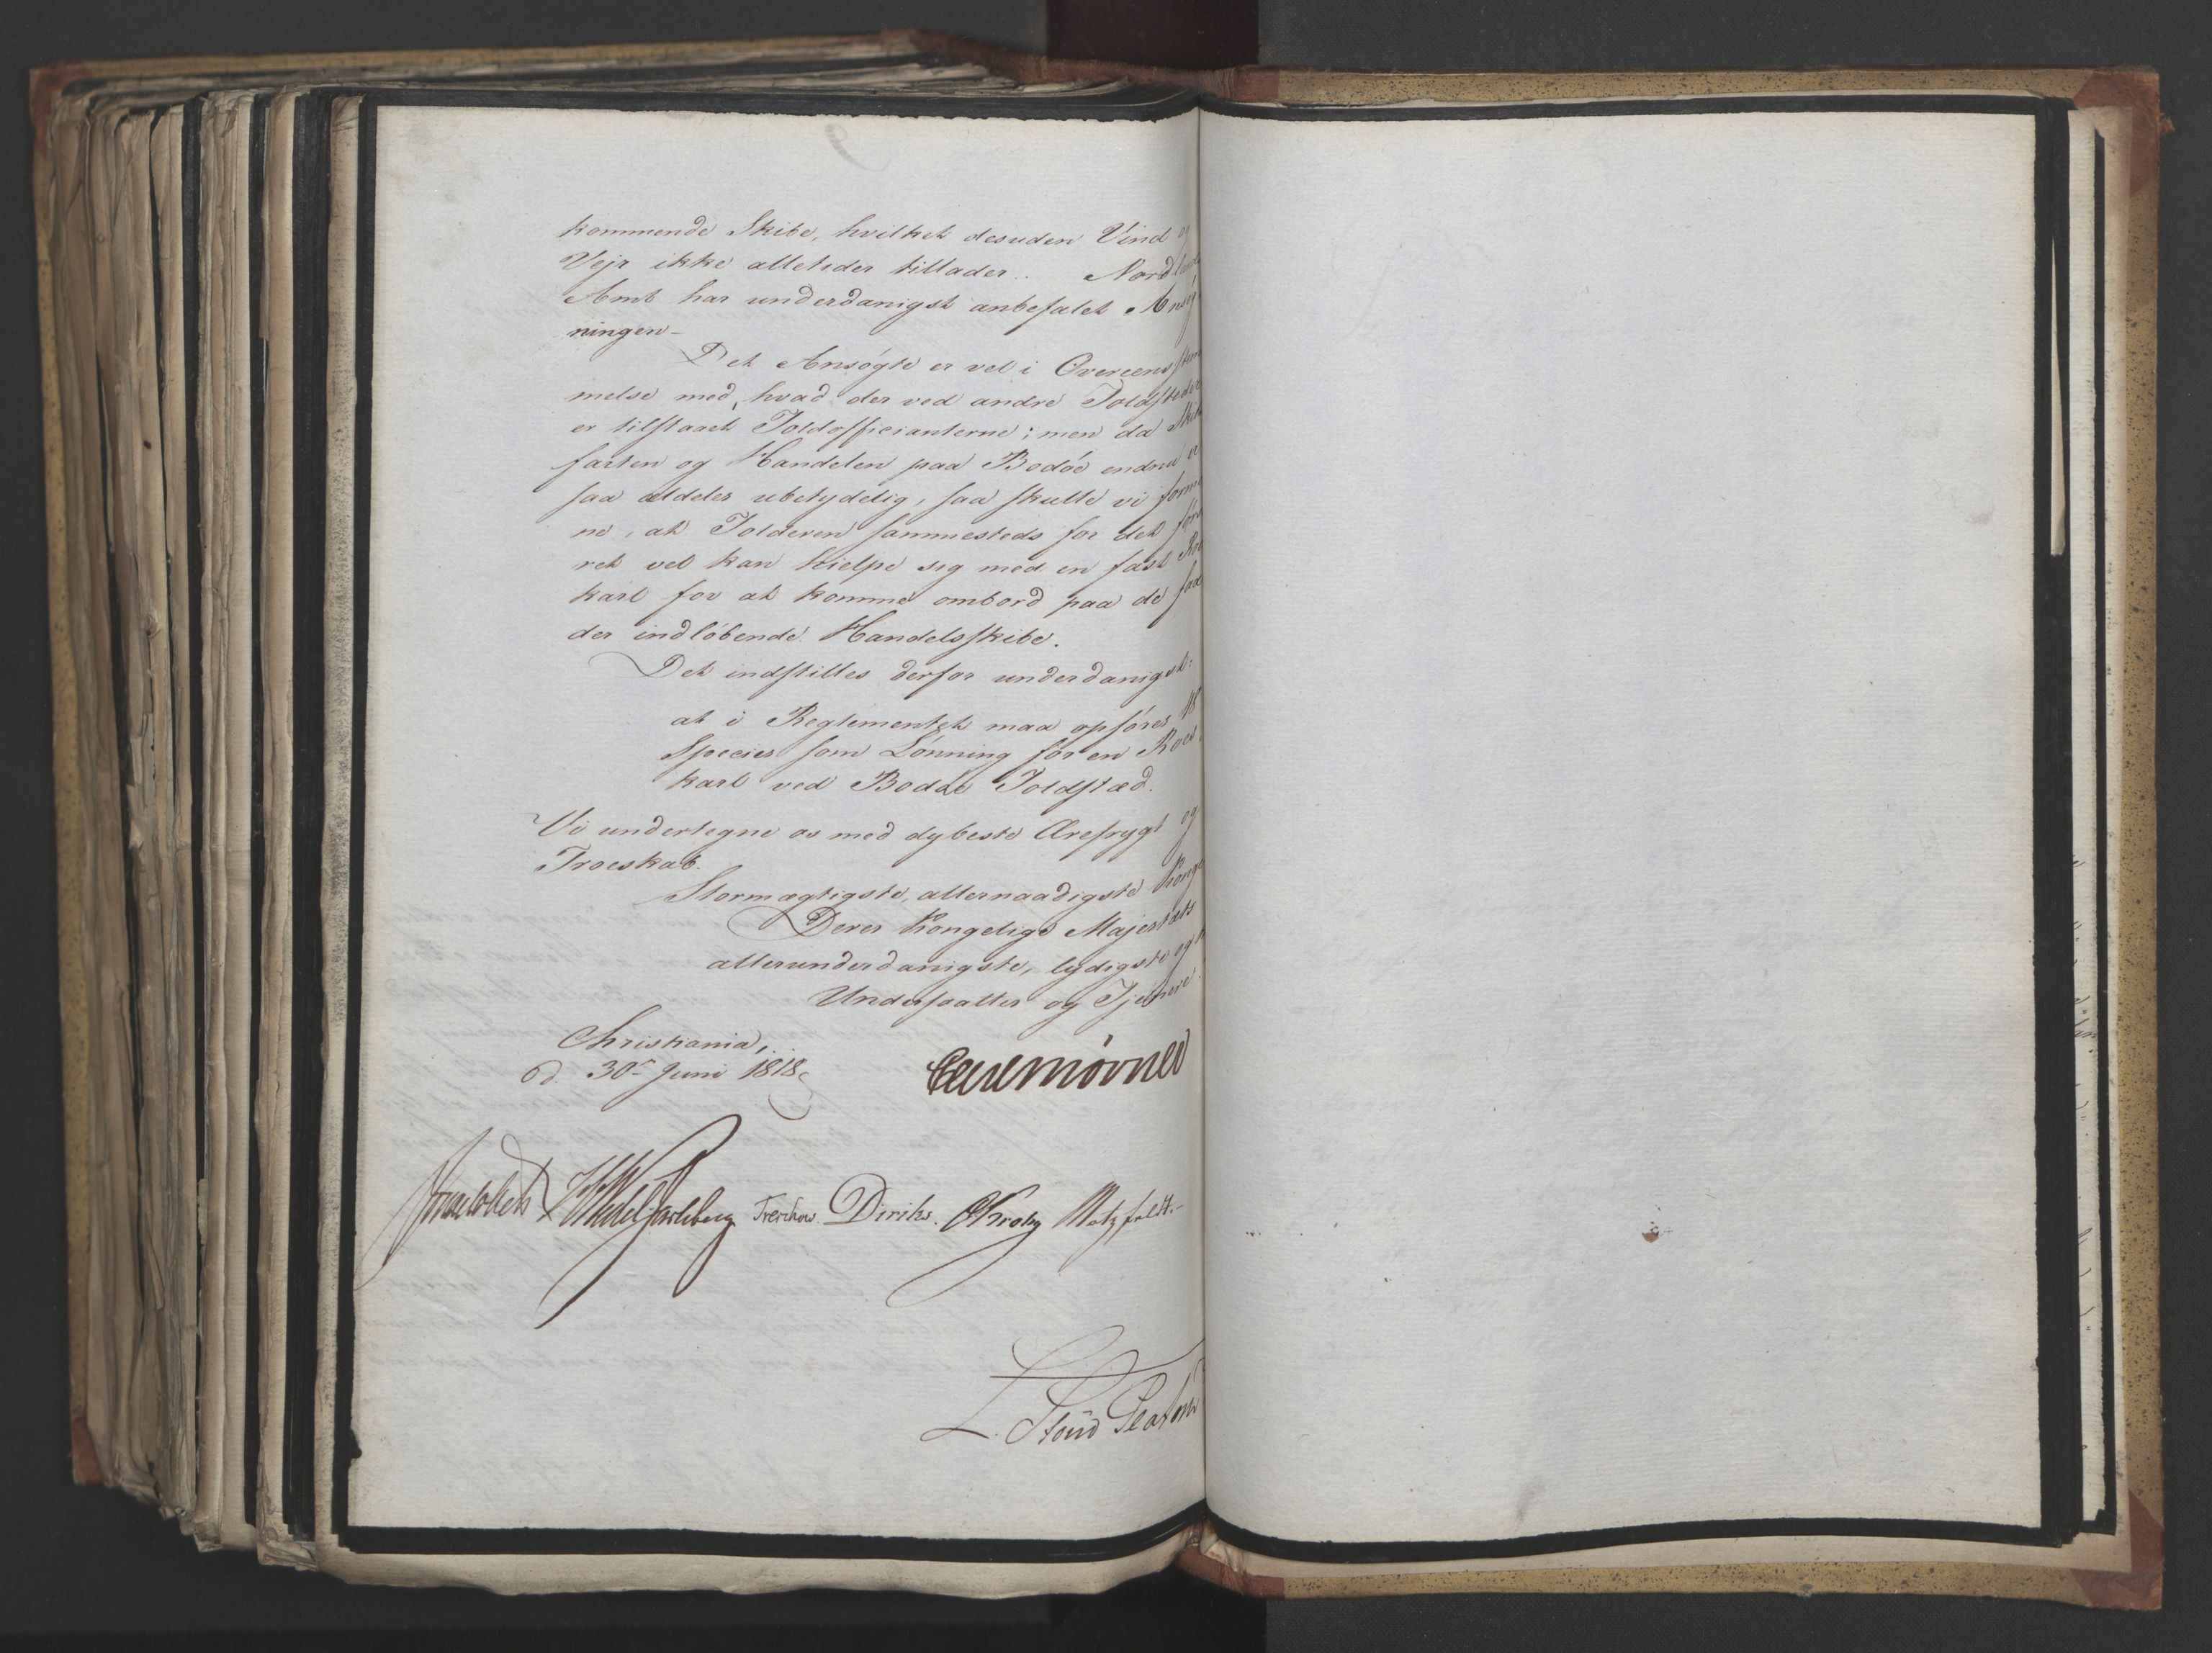 kommende Skibe, hvilket desuden Vind og
Vejr ikke alletider tillader. Nordland
Amt har underdanigst anbefalet Ansøg
ningen-
Det Ansøgte er vel i Overeensstem
melse med, hvad der ved andre Toldsteder
er tilstaaet Toldofficianterne; men da Skib
farten og Handelen paa Bodöe endnu er
saa aldeles ubetydelig, saa skulle vi forme
ne, at Tolderen sammesteds for det förste
ret vel kan hielpe sig med en fast Roe
karl for at komme ombord paa de
der indlöbende Handelsskibe.
Det indstilles derfor underdanigst:
at i Reglementet maa opföres 48
Species som Lönning for en Roes
karl ved Bodöe Toldsted.
Vi undertegne os med dybeste Ærefrygt og
Troeskab.
Stormægtigste, allernaadigste Konge
Deres Kongelige Majestæts
allerunderdanigste, lydigste og
Undersaatter og Tjenere
Christiania,
d. 30te Juni 1818
Carl Mörner
Sommerhielm HWedelJarlsberg Treschow. Diriks. CKrohg Motzfeldt.-
L. Stoud Platou